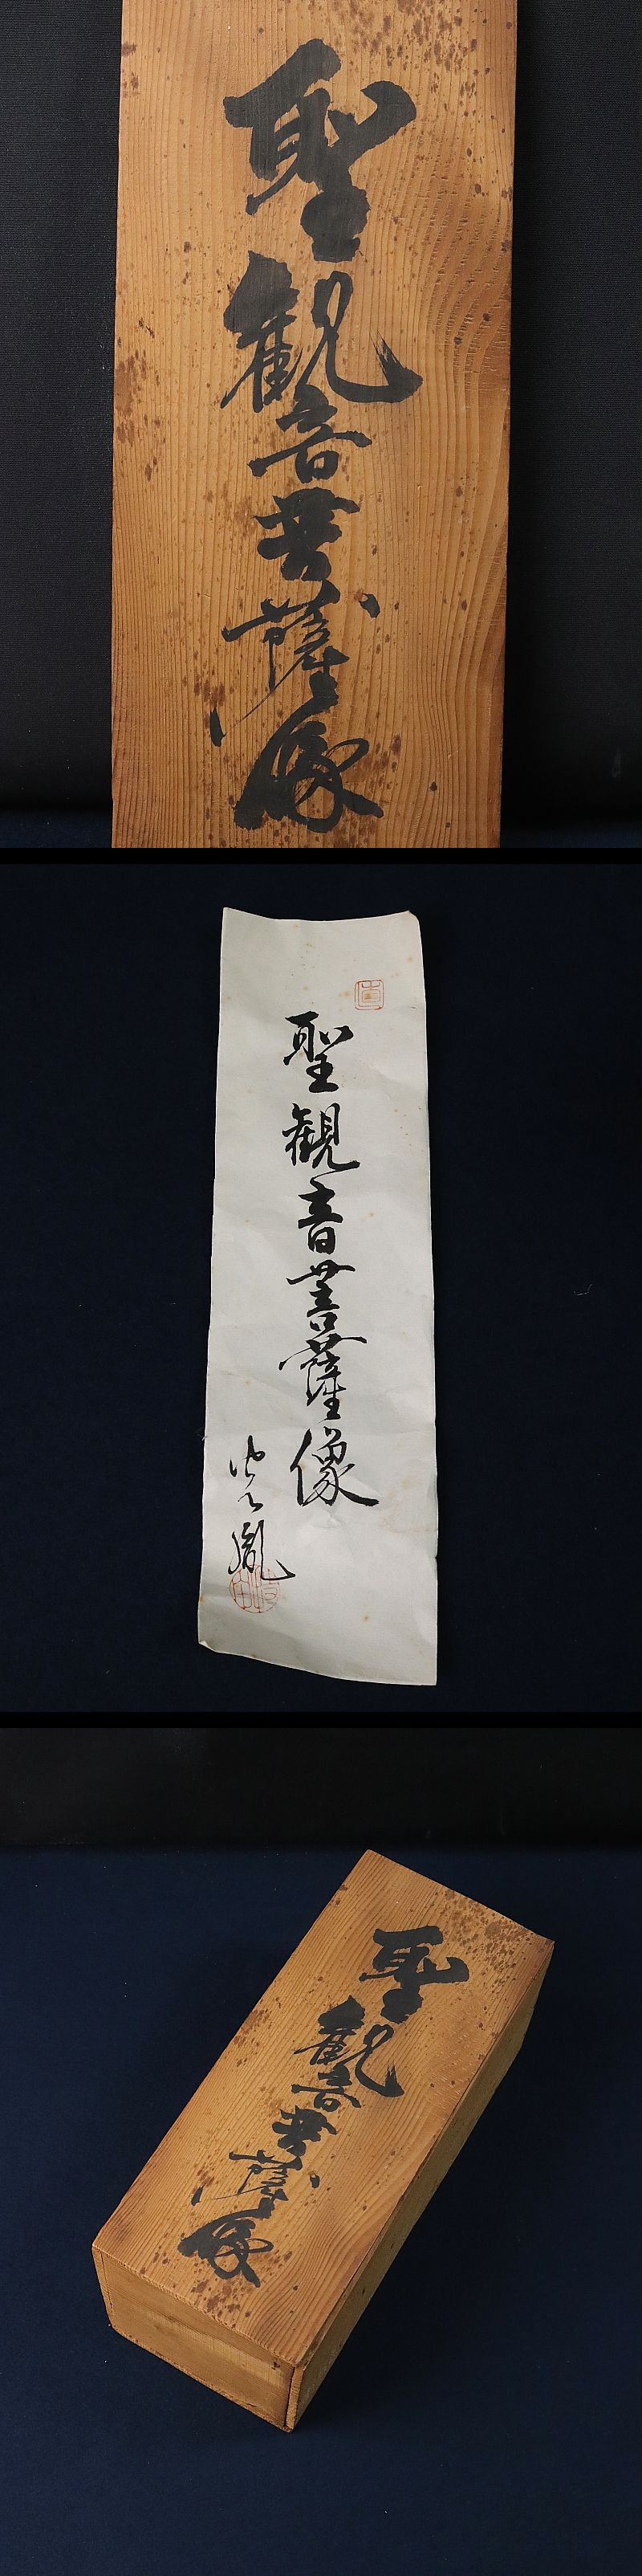 聖観音菩薩像
聖観音菩薩像
聖観音菩薩像